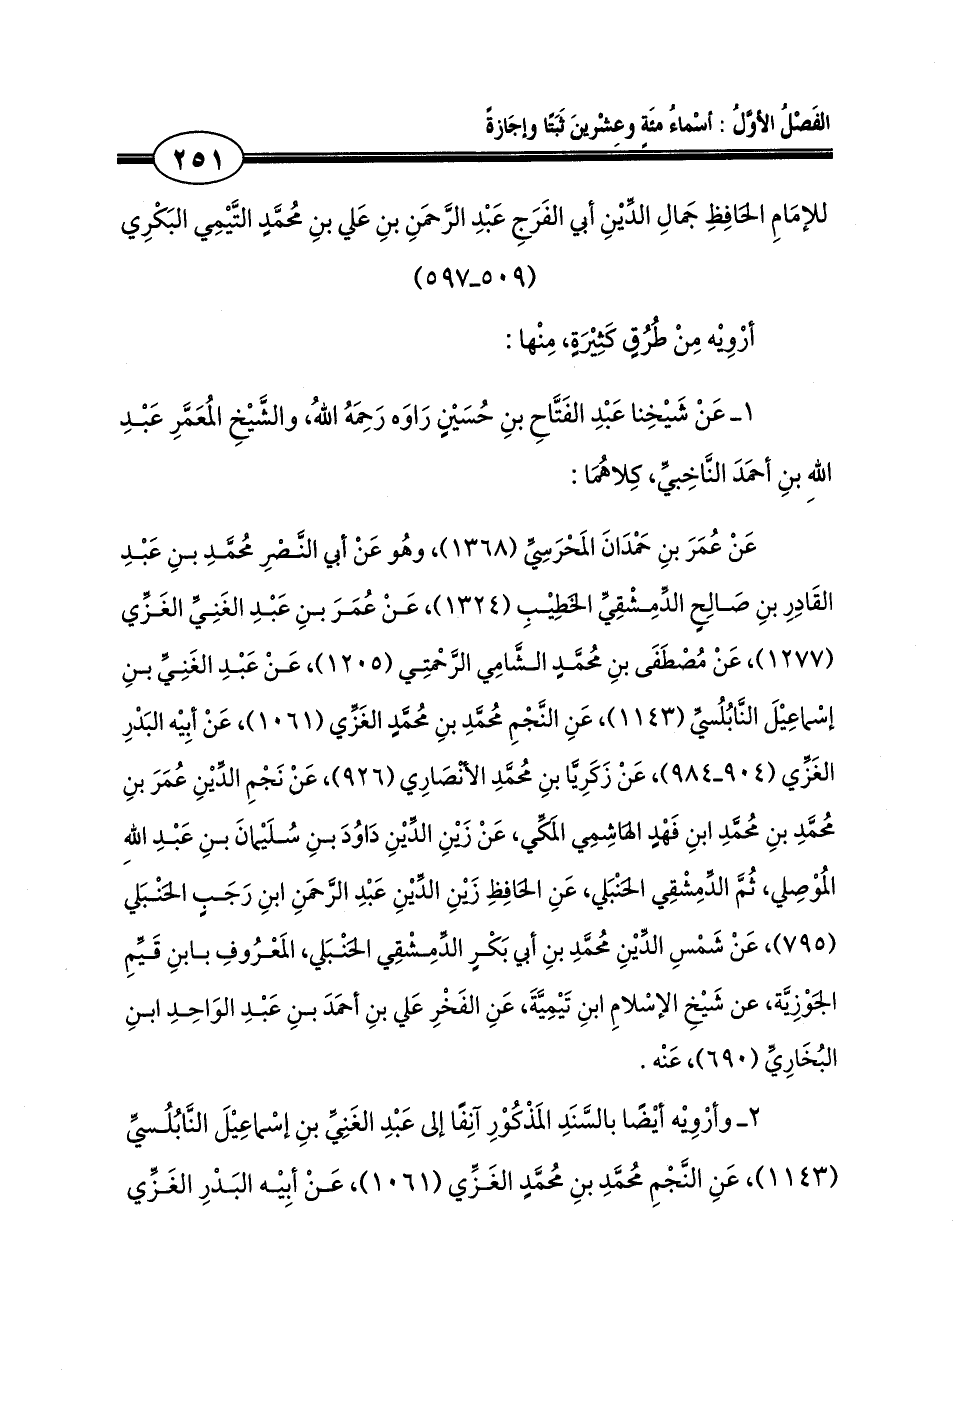 الفَصْلُ الأوَّلُ : أسْماءُ مئَةٍ وعِشْرينَ ثَبَتًا وإجَازةً
٢٥١
للإمَامِ الحَافِظِ جَمالِ الدِّيْنِ أبي الفَرَجِ عَبْدِ الرَّحمَنِ بنِ عَلي بنِ مُحمَّدٍ التَّيْمِي البَكْرِي
(٥٠٩ـ٥٩٧)
أرْوِيْه مِنْ طُرُقٍ كَثِيْرَةٍ، مِنْها :
١ـ عَنْ شَيْخِنا عَبْدِ الفَتَّاحِ بنِ حُسَيْنٍ رَاوَه رَحِمَهُ اللهُ، والشَّيْخِ المُعَمَّرِ عَبْدِ
اللهِ بنِ أحمَدَ النَّاخِبيِّ، كِلاهُمَا :
عَنْ عُمَرَ بنِ حَمْدَانَ المَحْرَسِيِّ (١٣٦٨)، وهُو عَنْ أبي النَّصْرِ مُحمَّدِ بنِ عَبْدِ
القَادِرِ بنِ صَالِحٍ الدِّمِشْقِيِّ الخَطِيْبِ (١٣٢٤)، عَنْ عُمَرَ بنِ عَبْدِ الغَنِيِّ الغَزِّي
(١٢٧٧)، عَنْ مُصْطَفَى بنِ مُحمَّدٍ الشَّامِي الرَّحْمتِي (١٢٠٥)، عَنْ عَبْدِ الغَنِيِّ بنِ
إسْماعِيْلَ النَّابُلُسيِّ (١١٤٣)، عَنِ النَّجْمِ مُحمَّدِ بنِ مُحمَّدٍ الغَزِّي (١٠٦١)، عَنْ أبيْه البَدْرِ
الغَزِّي (٩٠٤ـ٩٨٤)، عَنْ زَكَرِيَّا بنِ مُحمَّدِ الأنْصَارِي (٩٢٦)، عَنْ نَجْمِ الدِّيْنِ عُمَرَ بنِ
مُحمَّدِ بنِ مُحمَّدِ ابنِ فَهْدٍ الهَاشِمِي المَكِّي، عَنْ زَيْنِ الدِّيْنِ دَاوُدَ بنِ سُلَيْمانَ بنِ عَبْدِ اللهِ
المُوْصِلي، ثُمَّ الدِّمشْقِي الحَنْبَلي، عَنِ الحَافِظِ زَيْنِ الدِّيْنِ عَبْدِ الرَّحمَنِ ابنِ رَجَبٍ الحَنْبَلي
(٧٩٥)، عَنْ شَمْسِ الدِّيْنِ مُحمَّدِ بنِ أبي بَكْرٍ الدِّمِشْقِي الحَنْبَلي، المَعْرُوفِ بابنِ قَيِّمِ
الجَوْزِيَّة، عن شَيْخِ الإسْلامِ ابنِ تَيْمِيَّةَ، عَنِ الفَخْرِ علي بنِ أحمَدَ بنِ عَبْدِ الوَاحِدِ ابنِ
البُخَارِيِّ (٦٩٠)، عَنْه .
٢ـ وأرْوِيْه أيْضًا بالسَّنَدِ المَذْكُوْرِ آنِفًا إلى عَبْدِ الغَنِيِّ بنِ إسْماعِيْلَ النَّابُلُسيِّ
(١١٤٣)، عَنِ النَّجْمِ مُحمَّدِ بنِ مُحمَّدٍ الغَزِّي (١٠٦١)، عَنْ أبيْه البَدْرِ الغَزِّي